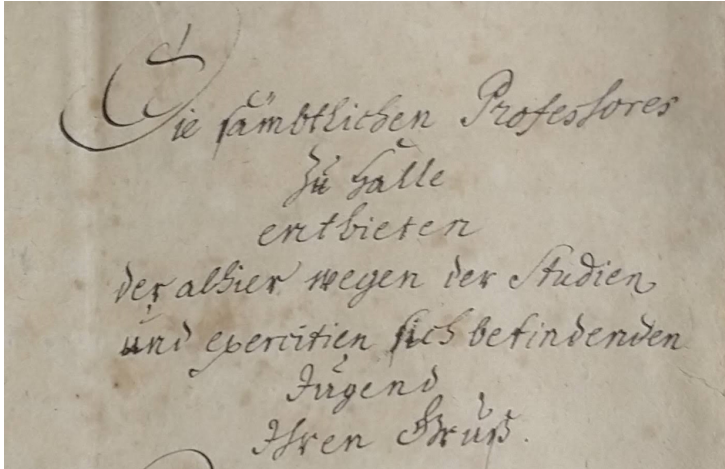 Die sämbtlichen Professores
Zu Halle
entbieten
der alhier wegen der Studien
und exercitien sich befindenden
Jugend
Ihren Gruß.